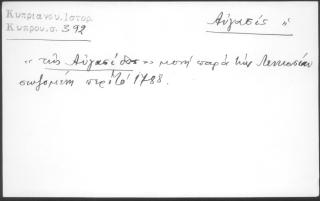 Κυπριανου. Ιστορ.
Κυπρου. σ. 392
Αὐγασίς "
" τῆς Αὐγασίδος " μονὴ παρὰ τὴν Λευκωσίαν
σωζομένη περὶ τὸ 1788.